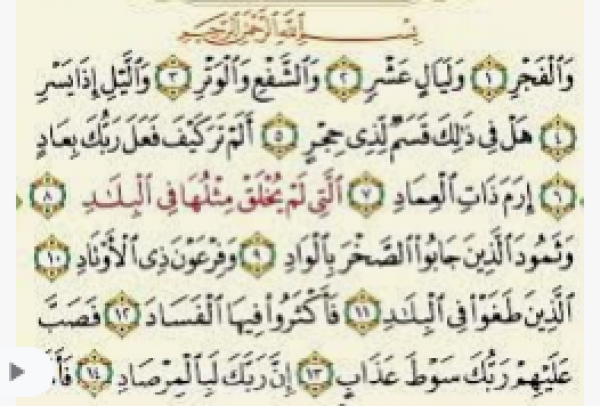 بِسْمِ اللَّهِ الرَّحْمَٰنِ الرَّحِيمِ
وَالْفَجْرِ ۝١ وَلَيَالٍ عَشْرٍ ۝٢ وَالشَّفْعِ وَالْوَتْرِ ۝٣ وَاللَّيْلِ إِذَا يَسْرِ
۝٤ هَلْ فِي ذَٰلِكَ قَسَمٌ لِّذِي حِجْرٍ ۝٥ أَلَمْ تَرَ كَيْفَ فَعَلَ رَبُّكَ بِعَادٍ
۝٦ إِرَمَ ذَاتِ الْعِمَادِ ۝٧ الَّتِي لَمْ يُخْلَقْ مِثْلُهَا فِي الْبِلَادِ ۝٨
وَثَمُودَ الَّذِينَ جَابُوا الصَّخْرَ بِالْوَادِ ۝٩ وَفِرْعَوْنَ ذِي الْأَوْتَادِ ۝١٠
الَّذِينَ طَغَوْا فِي الْبِلَادِ ۝١١ فَأَكْثَرُوا فِيهَا الْفَسَادَ ۝١٢ فَصَبَّ
عَلَيْهِمْ رَبُّكَ سَوْطَ عَذَابٍ ۝١٣ إِنَّ رَبَّكَ لَبِالْمِرْصَادِ ۝١٤